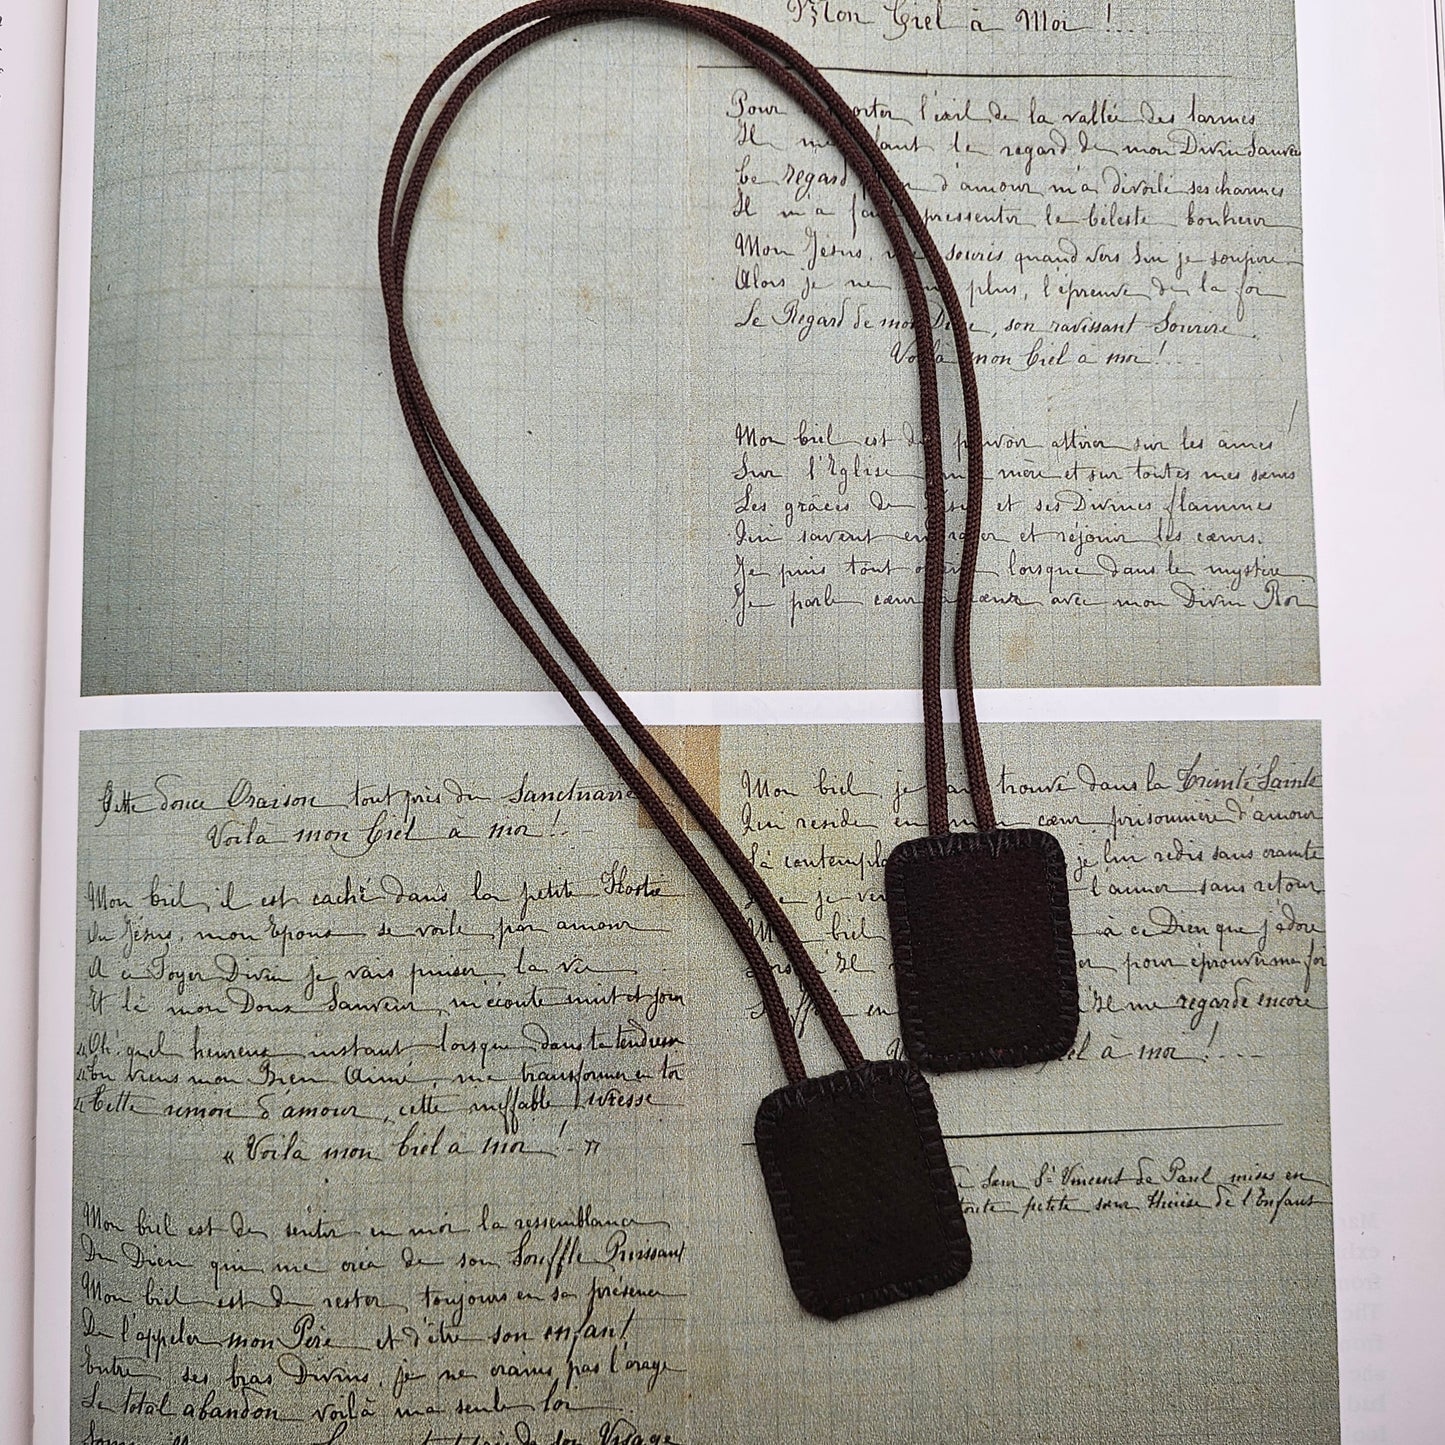 Mon Ciel à Moi !...
Pour l'exil de la vallée des larmes
Il me le regard de mon Divin Sauveur
Ce regard d'amour m'a dévoilé ses charmes
Il m'a pressentir le Céleste bonheur
Mon Jésus, souris quand vers Lui je soupire
Alors je ne plus, l'épreuve de la foi
Le Regard de mon Dieu, son ravissant Sourire
Voilà mon Ciel à moi !...
Mon Ciel est de pouvoir attirer sur les âmes
Sur l'Eglise mère et sur toutes mes sœurs
Les grâces de Jésus et ses Divines flammes
Qui savent et réjouir les cœurs.
Je puis tout lorsque dans le mystère
Je parle cœur à cœur avec mon Divin Roi
Cette douce Oraison tout près du Sanctuaire
Voilà mon Ciel à moi !..
Mon Ciel, il est caché dans la petite Hostie
Où Jésus, mon Epoux se voile par amour
A ce Foyer Divin je vais puiser la vie
Et là mon Doux Sauveur, m'écoute nuit et jour
«Oh! quel heureux instant lorsque dans ta tendresse
«Tu viens mon Bien Aimé, me transformer en toi
«Cette union d'amour, cette ineffable ivresse
« Voilà mon Ciel à moi !.. »
Mon Ciel est de sentir en moi la ressemblance
Du Dieu qui me créa de son Souffle Puissant
Mon Ciel est de rester toujours en sa présence
De l'appeler mon Père et d'être son enfant
Entre ses bras Divins, je ne crains pas l'orage
Le total abandon voilà ma seule loi.
près de son Visage
Mon Ciel, je trouvé dans la Trinité Sainte
Qui réside en mon cœur, prisonnière d'amour
Là je lui redis sans crainte
l'aimer sans retour
Mon Ciel à ce Dieu que j'adore
pour éprouver ma foi
me regarde encore
à moi !...
Sœur St Vincent de Paul, mises en
toute petite sœur Thérèse de l'Enfant